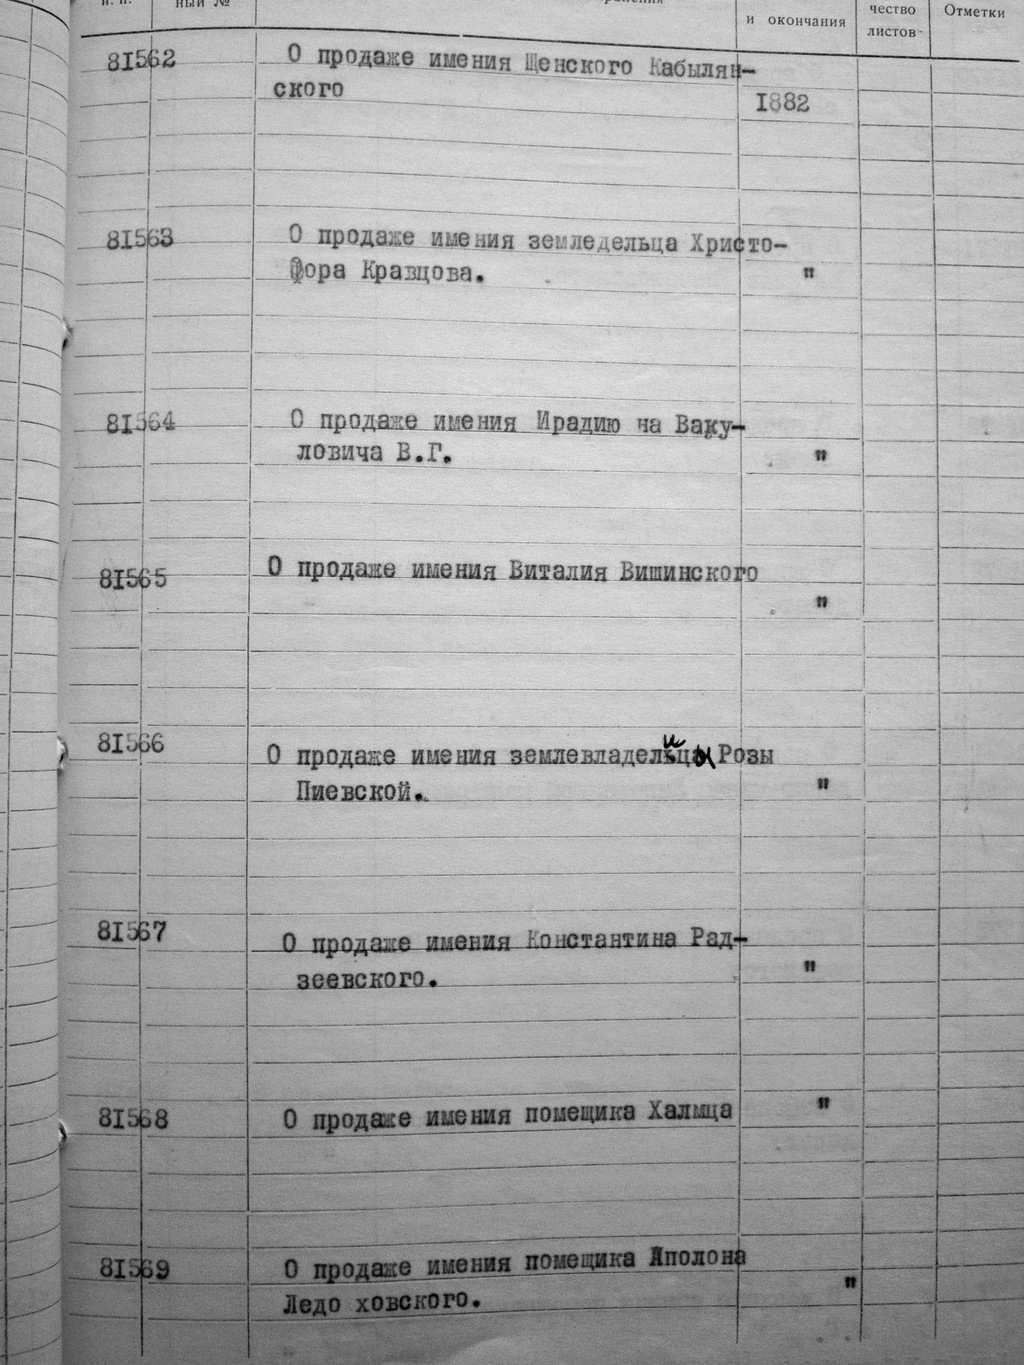 п. п.
ный №
и окончания
чество
листов
Отметки
81562
О продаже имения Щенского Кабылян-
ского
1882
81563
О продаже имения земледельца Христо-
фора Кравцова.
"
81564
О продаже имения Ирадию на Ваку-
ловича В.Г.
"
81565
О продаже имения Виталия Вишинского
"
81566
О продаже имения землевладелицы Розы
Пиевской.
"
81567
О продаже имения Константина Рад-
зеевского.
"
81568
О продаже имения помещика Халмца
"
81569
О продаже имения помещика Аполона
Ледо ховского.
"